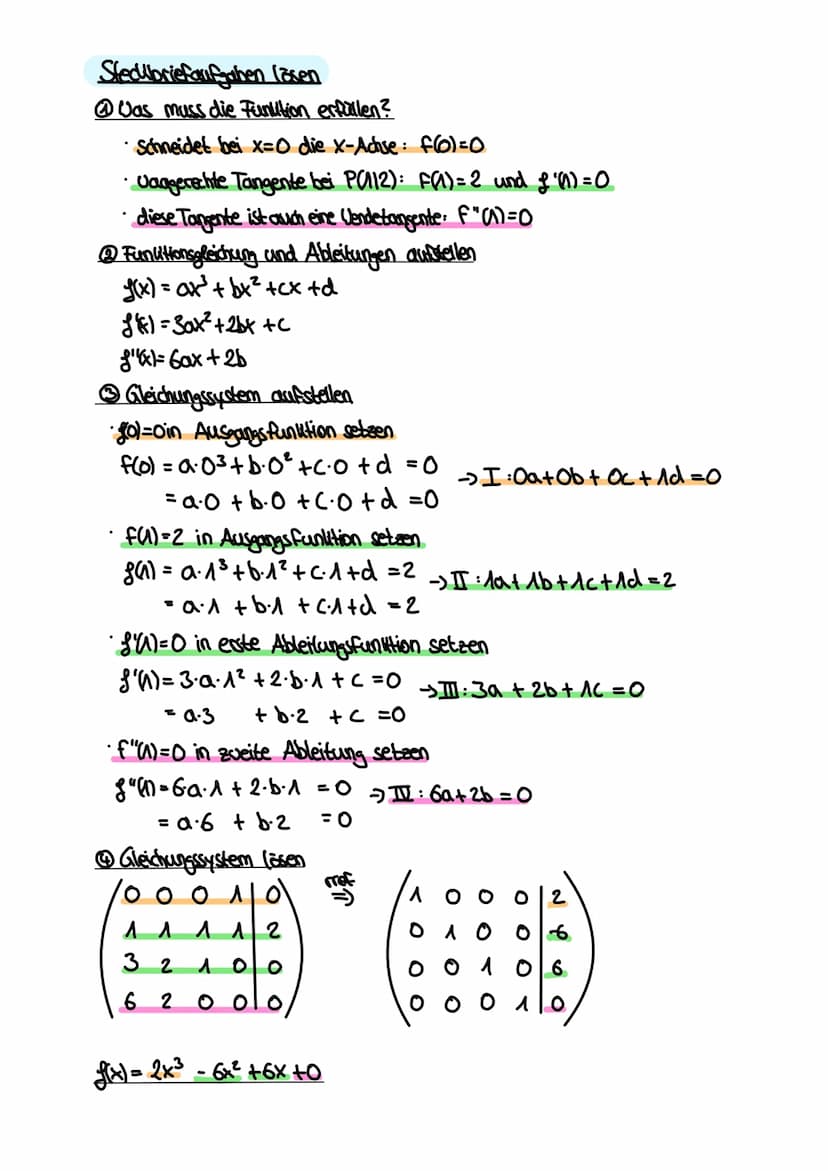 Steckbriefaufgaben lösen
① Was muss die Funktion erfüllen?
· schneidet bei x=0 die x-Achse: f(0)=0
· waagerechte Tangente bei P(1|2): f(1)=2 und f'(1)=0
· diese Tangente ist auch eine Wendetangente: f"(1)=0
② Funktionsgleichung und Ableitungen aufstellen
f(x) = ax³ + bx² + cx + d
f'(x) = 3ax² + 2bx + c
f''(x) = 6ax + 2b
③ Gleichungssystem aufstellen
· f(0)=0 in Ausgangsfunktion setzen
f(0) = a·0³ + b·0² + c·0 + d = 0 → I: 0a + 0b + 0c + 1d = 0
= a·0 + b·0 + c·0 + d = 0
· f(1)=2 in Ausgangsfunktion setzen
f(1) = a·1³ + b·1² + c·1 + d = 2 → II: 1a + 1b + 1c + 1d = 2
= a·1 + b·1 + c·1 + d = 2
· f'(1)=0 in erste Ableitungsfunktion setzen
f'(1) = 3·a·1² + 2·b·1 + c = 0 → III: 3a + 2b + 1c = 0
= a·3 + b·2 + c = 0
· f"(1)=0 in zweite Ableitung setzen
f"(1) = 6a·1 + 2·b·1 = 0 → IV: 6a + 2b = 0
= a·6 + b·2 = 0
④ Gleichungssystem lösen
rref
0 0 0 1 | 0 ⇒ 1 0 0 0 | 2
1 1 1 1 | 2 0 1 0 0 | -6
3 2 1 0 | 0 0 0 1 0 | 6
6 2 0 0 | 0 0 0 0 1 | 0
f(x) = 2x³ - 6x² + 6x + 0